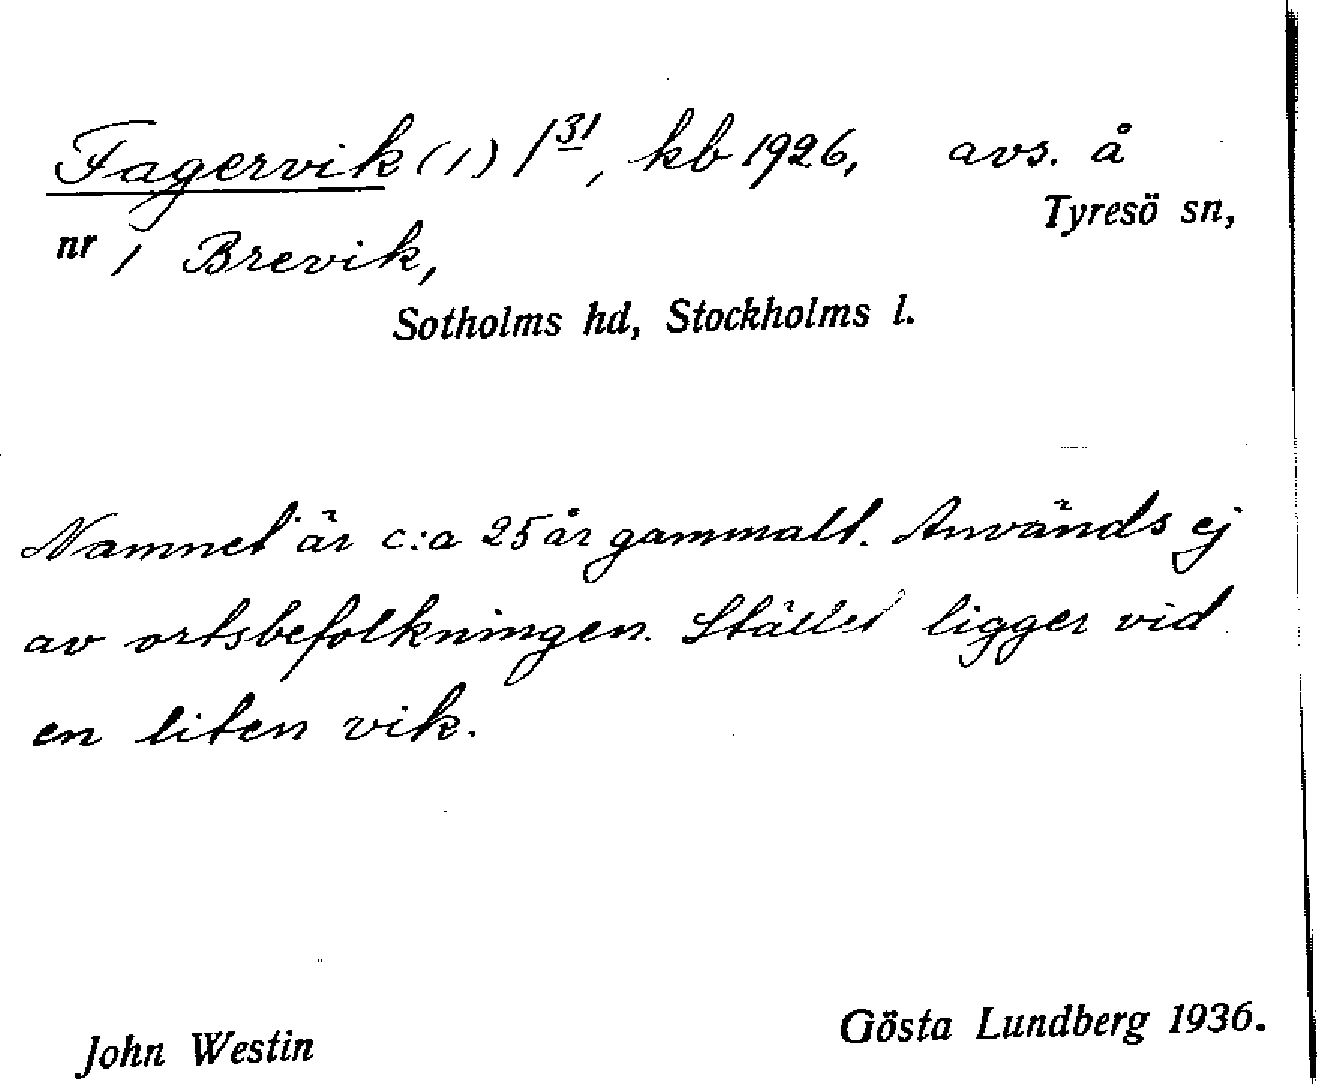 Fagervik (1) 1³¹, kb 1926, avs. å
Tyresö sn,
nr 1 Brevik,
Sotholms hd, Stockholms l.
Namnet är c:a 25 år gammalt. Används ej
av ortsbefolkningen. Stället ligger vid
en liten vik.
John Westin
Gösta Lundberg 1936.